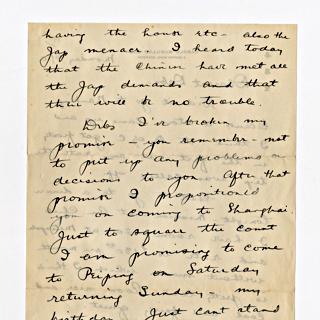 having the honor etc - also the
Jap menace. I heard today
that the Chinese have met all
the Jap demands and that
there will be no trouble.
Debs I've broken my
promise - you remember - not
to put up any problems or
decisions to you. After that
promise I propositioned
you on coming to Shanghai
Just to square the count
I am promising to come
to Peiping on Saturday
returning Sunday, my
birthday. Just can't stand